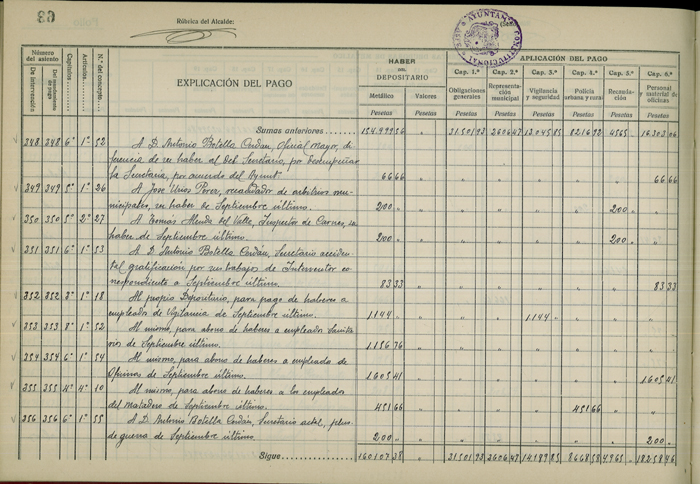 63
Rúbrica del Alcalde:
AYUNTAMIENTO CONSTITUCIONAL
Número del asiento
De intervención
Del mandamiento de pago
Capítulos
Artículos
N.º del concepto
EXPLICACIÓN DEL PAGO
HABER DEL DEPOSITARIO
Metálico
Valores
Pesetas
Pesetas
APLICACIÓN DEL PAGO
Cap. 1.º Cap. 2.º Cap. 3.º Cap. 4.º Cap. 5.º Cap. 6.º
Obligaciones generales
Representación municipal
Vigilancia y seguridad
Policía urbana y rural
Recaudación
Personal y material de oficinas
Pesetas Pesetas Pesetas Pesetas Pesetas Pesetas
Sumas anteriores 154.499 56 " 31.501 93 2606 47 13.045 85 8216 92 4565 " 16.303 06
348 348 6º 1º 52 A D. Antonio Botella Cerdán, oficial Mayor, di-
ferencia de su haber al del Secretario, por desempeñar
la Secretaría, por acuerdo del Ayunt. 66 66 " 66 66
349 349 5º 1º 26 A José Urios Perez, recaudador de arbitrios mu-
nicipales, su haber de Septiembre último. 200 " 200 "
350 350 5º 2º 27 A Tomás del Valle, Inspector de Carnes, su
haber de Septiembre último. 200 " 200 "
351 351 6º 1º 53 A D. Antonio Botella Cerdán, Secretario acciden-
tal gratificación por sus trabajos de Interventor co-
rrespondiente a Septiembre último. 83 33 " 83 33
352 352 3º 1º 18 Al propio Depositario, para pago de haberes a
empleados de Vigilancia de Septiembre último. 1144 " 1144 "
353 353 8º 1º 52 Al mismo, para abono de haberes a empleados Sanita-
rios de Septiembre último. 1156 76
354 354 6º 1º 54 Al mismo, para abono de haberes a empleados de
Oficinas de Septiembre último. 1605 41 " 1605 41
355 355 4º 4º 10 Al mismo, para abono de haberes a los empleados
del matadero de Septiembre último. 451 66 " 451 66
356 356 6º 1º 55 A D. Antonio Botella Cerdán, Secretario actal, plus
de guerra de Septiembre último. 200 " 200 "
Sigue 160107 38 31.501 93 2606 47 14.189 85 8668 58 4965 " 18258 46